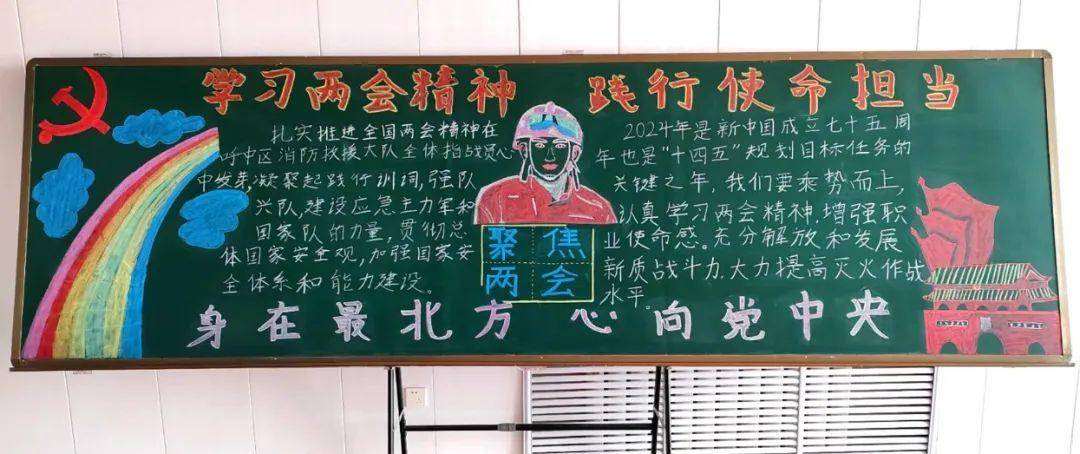 学习两会精神 践行使命担当
扎实推进全国两会精神在
呼中区消防救援大队全体指战员心
中发芽,凝聚起践行训词,强队
兴队,建设应急主力军和
国家队的力量,贯彻总
体国家安全观,加强国家安
全体系和能力建设。
聚焦
两会
2024年是新中国成立七十五周
年也是“十四五”规划目标任务的
关键之年,我们要乘势而上,
认真学习两会精神.增强职
业使命感。充分解放和发展
新质战斗力.大力提高灭火作战
水平。
身在最北方 心向党中央